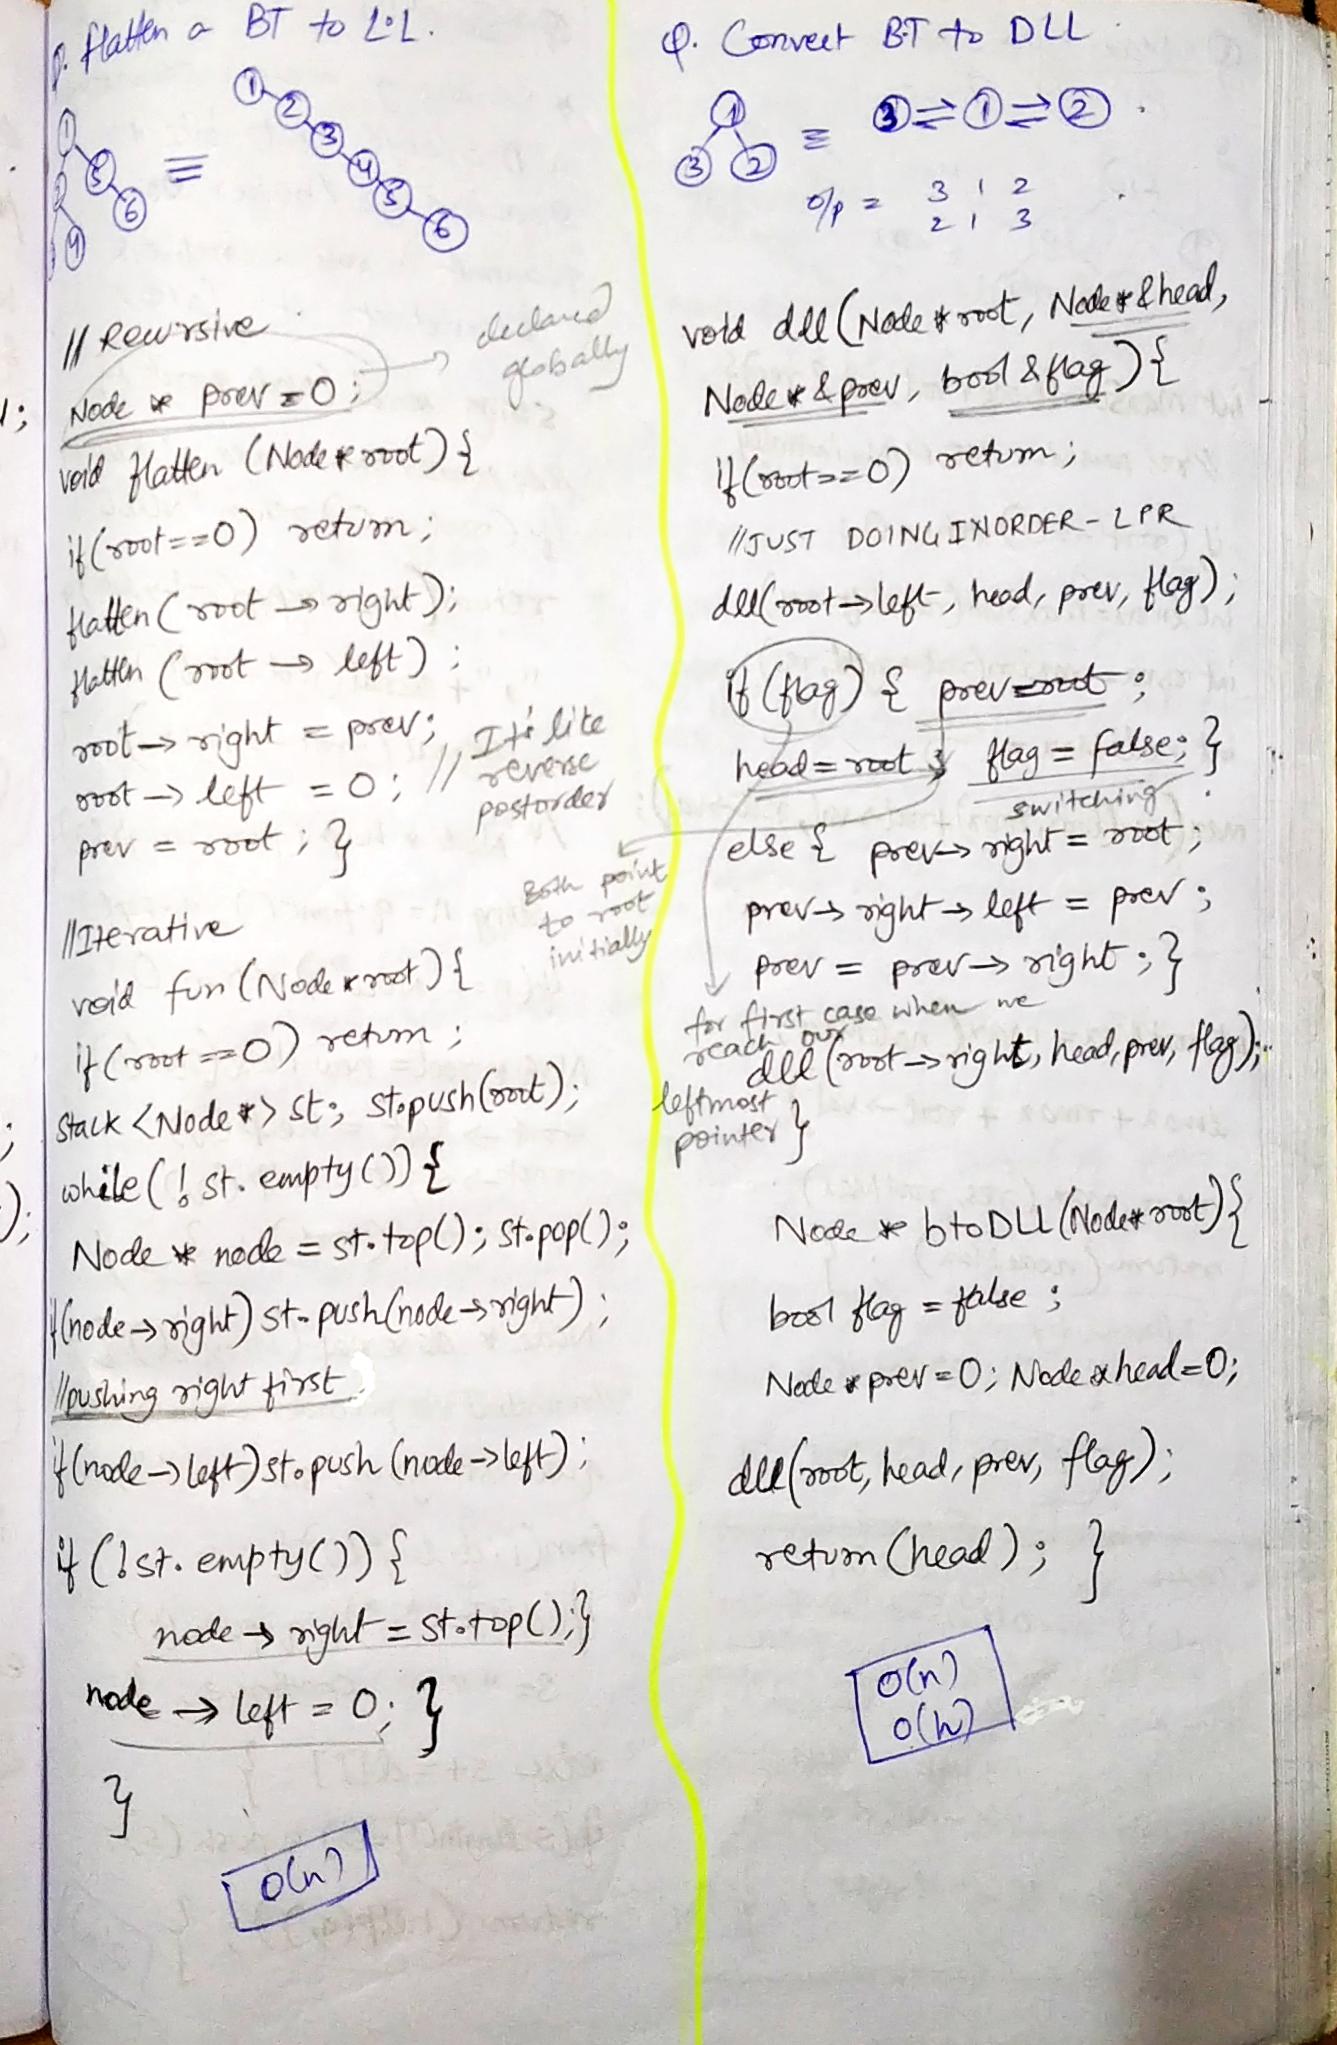 Q. flatten a BT to L.L.
1
5
2
6
4
≡
1
2
3
4
5
6
// Recursive
Node * prev = 0;
declared
globally
void flatten (Node * root) {
if (root==0) return;
flatten (root → right);
flatten (root → left);
root → right = prev;
root → left = 0; // It's like
reverse
postorder
prev = root; }
//Iterative
void fun (Node * root) {
if (root ==0) return;
stack <Node *> st; st.push(root);
while (! st. empty()) {
Node * node = st.top(); st.pop();
if(node → right) st.push(node → right);
//pushing right first
if(node → left) st.push (node → left);
if (!st. empty()) {
node → right = st.top();}
node → left = 0; }
}
O(n)
Q. Convert B.T to DLL
1
3 2
≡ 3 ⇌ 1 ⇌ 2
o/p = 3 1 2
2 1 3
void dll (Node * root, Node * & head,
Node * & prev, bool & flag) {
if (root==0) return;
//JUST DOING INORDER - LPR
dll(root → left, head, prev, flag);
if (flag) { prev=root;
head = root; flag = false; }
switching
else { prev → right = root;
Both point
to root
initially
prev → right → left = prev;
prev = prev → right; }
for first case when we
reach our
leftmost
pointer
dll (root → right, head, prev, flag);
}
Node * btoDLL (Node* root) {
bool flag = false;
Node * prev = 0; Node * head = 0;
dll (root, head, prev, flag);
return (head); }
O(n)
O(h)